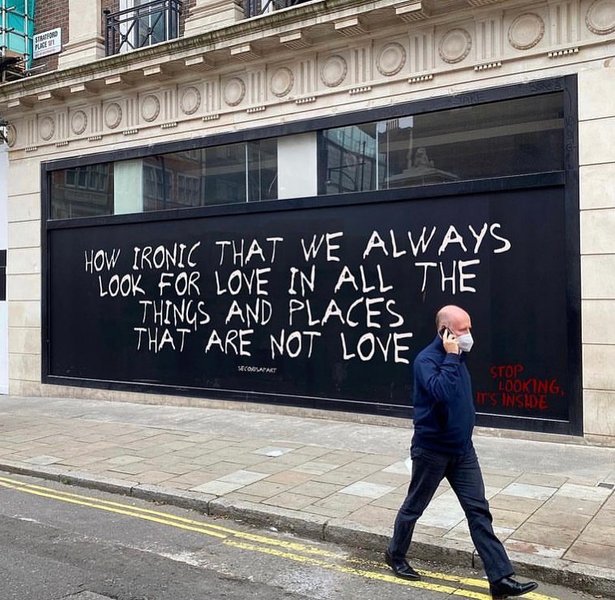 STRATFORD
PLACE W1
HOW IRONIC THAT WE ALWAYS
LOOK FOR LOVE IN ALL THE
THINGS AND PLACES
THAT ARE NOT LOVE
SECONDSAPART
STOP
LOOKING,
IT'S INSIDE